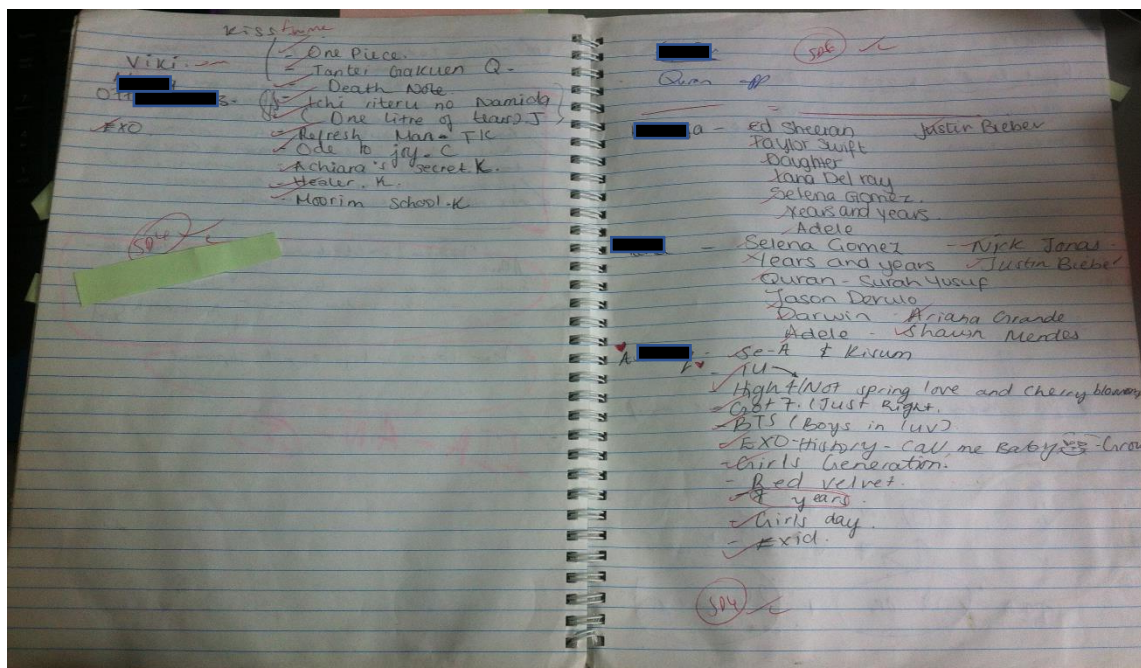 Kissanime
- One Piece.
Viki.
- Tantei Gakuen Q.
- Death Note.
- Ichi riteru no Namida
(One litre of tears) J
EXO
- Refresh Man - TK
- Ode to joy - C
- Achiara's secret K.
- Healer. K.
- Moorim School. K
SP4
SP6
Quran - pp
a - ed Sheeran Justin Bieber
Taylor Swift
Daughter
Lana Del ray
Selena Gomez.
Years and years.
Adele
- Selena Gomez - Nick Jonas -
Years and years - Justin Bieber
Quran - Surah Yusuf
Jason Derulo
Darwin - Ariana Grande
Adele - Shawn Mendes
A
- Se-A & Kisum
- IU
- High 4 (Not spring love and cherry blossom
- Got 7. (Just Right.
- BTS (Boys in luv)
- EXO - History - Call me Baby - Grow
- Girls Generation.
- Red velvet.
- years.
- Girls day.
- Exid.
SP4